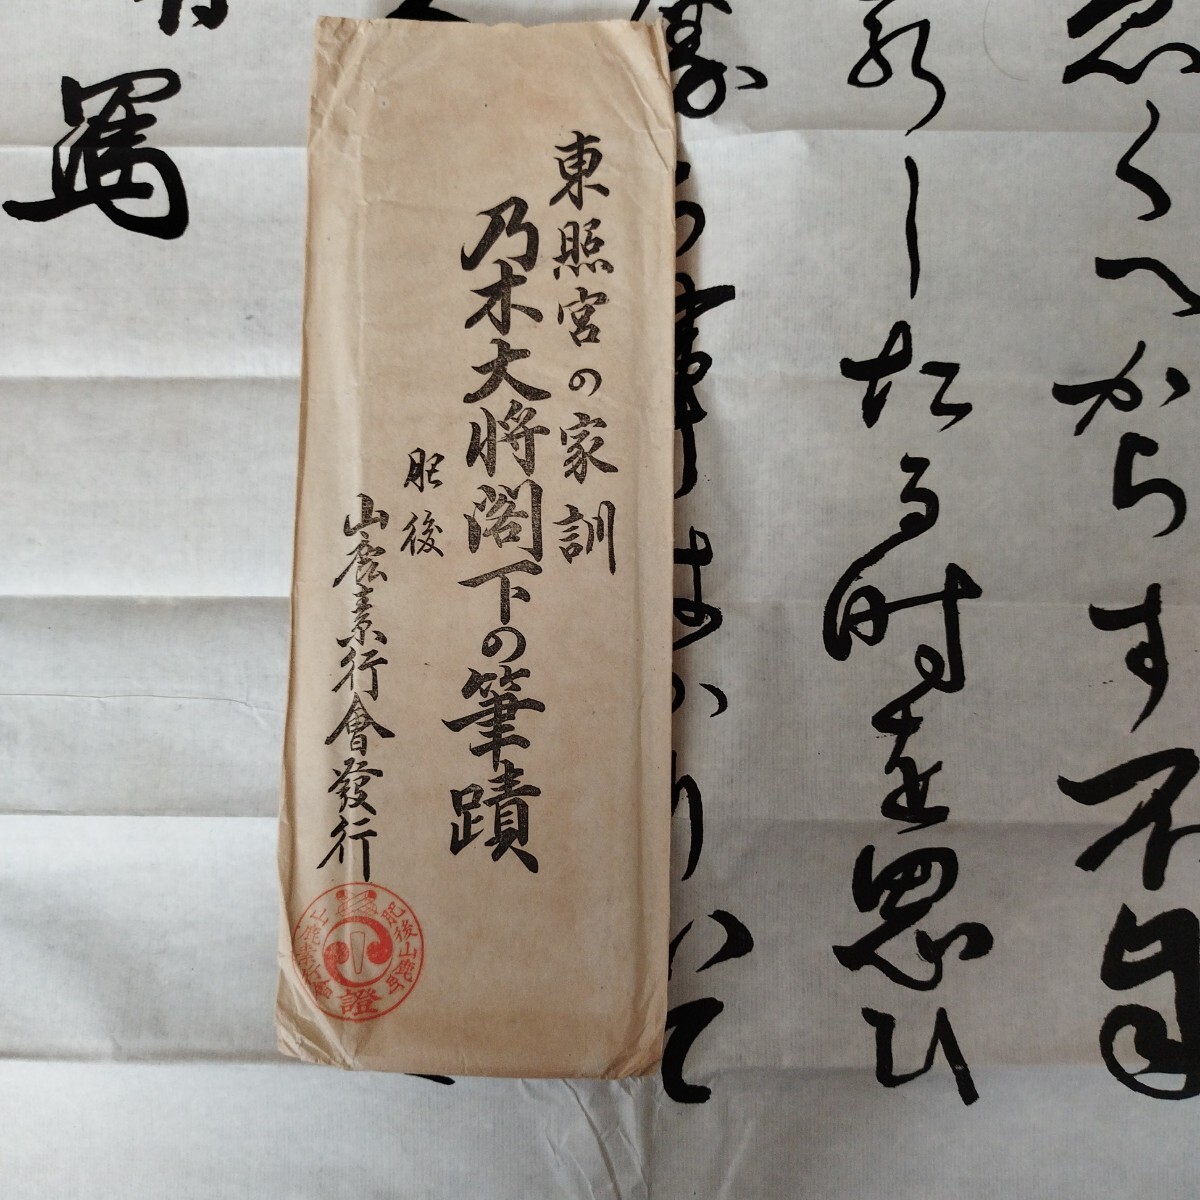 急くへからす不自
起したる時を思ひ
る事はかりいて
東照宮の家訓
乃木大将閣下の筆蹟
肥後
山鹿素行會發行
肥後山鹿町
山鹿素行會
證